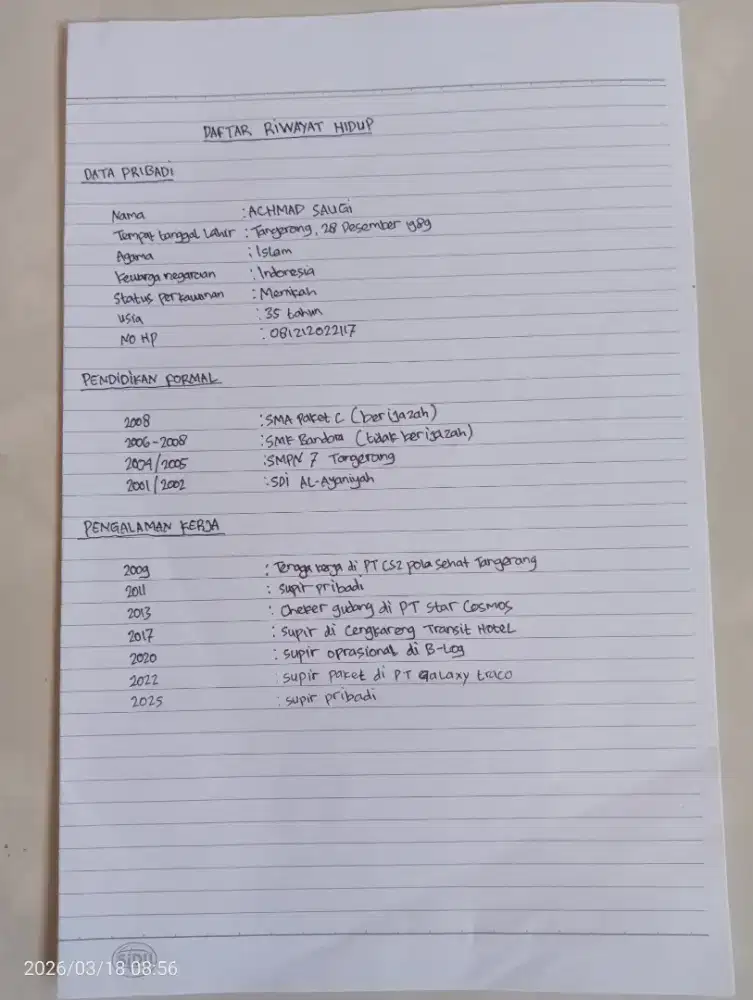 DAFTAR RIWAYAT HIDUP
DATA PRIBADI
Nama : ACHMAD SAUGI
Tempat tanggal Lahir : Tangerang, 28 Desember 1989
Agama : Islam
Kewarga negaraan : Indonesia
Status perkawinan : Menikah
usia : 35 tahun
NO HP : 081212022117
PENDIDIKAN FORMAL
2008 : SMA Paket C (berijazah)
2006-2008 : SMK Bandara (tidak berijazah)
2004/2005 : SMPN 7 Tangerang
2001/2002 : SDI AL-Ayaniyah
PENGALAMAN KERJA
2009 : Tenaga kerja di PT CS2 pola sehat Tangerang
2011 : supir pribadi
2013 : Cheker gudang di PT Star Cosmos
2017 : supir di Cengkareng Transit Hotel
2020 : supir oprasional di B-Log
2022 : supir paket di PT Galaxy traco
2025 : supir pribadi
SIDU
2026/03/18 08:56